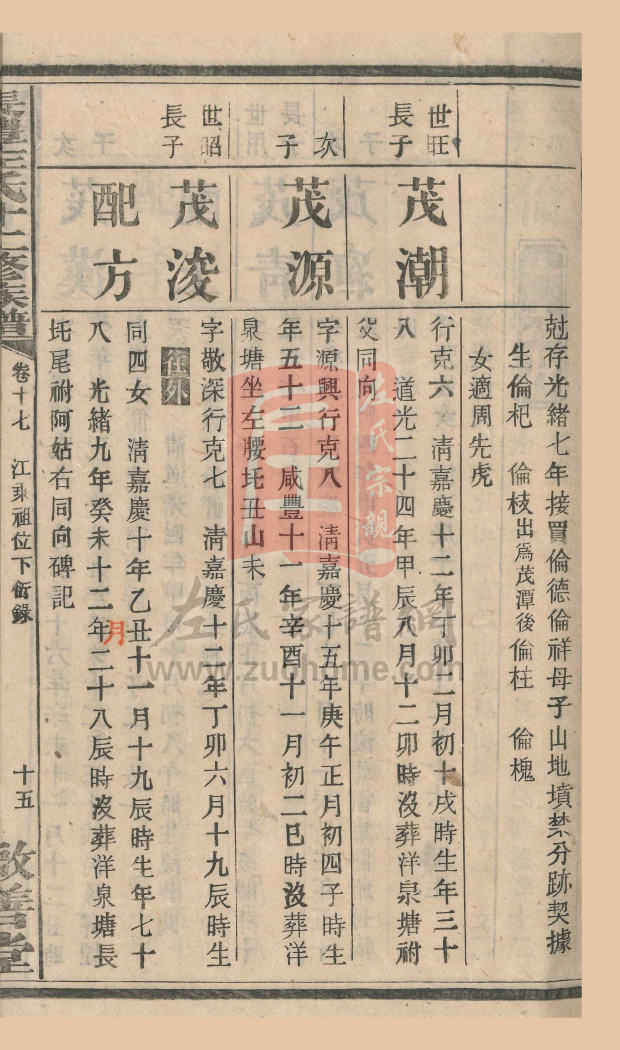 尅存光緒七年接買倫德倫祥母子山地墳禁分跡契據
生倫杞　倫枝出爲茂潭後倫柱　倫槐
女適周先虎
世旺
長子
茂潮
行克六　淸嘉慶十二年丁卯二月初十戌時生年三十
八　道光二十四年甲辰八月十二卯時沒葬洋泉塘祔
父同向
次
子
茂源
字源興行克八　淸嘉慶十五年庚午正月初四子時生
年五十二　咸豐十一年辛酉十一月初二巳時沒葬洋
泉塘坐左腰圫丑山未
世昭
長子
茂浚
字敬深行克七　淸嘉慶十二年丁卯六月十九辰時生
往外
配方
同四女　淸嘉慶十年乙丑十一月十九辰時生年七十
八　光緒九年癸未十二年二十八辰時沒葬洋泉塘長
月
圫尾祔阿姑右同向碑記
長澧左氏十二修族譜
卷十七　江永祖位下衍錄
十五
敬善堂
左氏宗親
左氏家譜網
www.zuohome.com